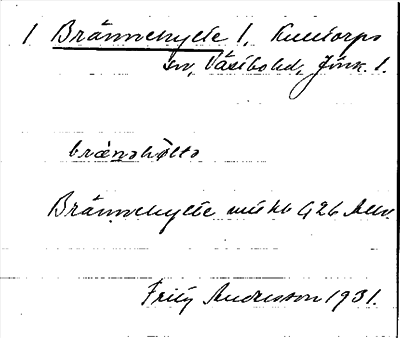 1 Brännehylte 1. Kulltorps
sn, Västbo hd, Jönk. l.
brænəhỿltə
Brännehylte mtl kb G26 Allv.
Fritz Andersson 1931.